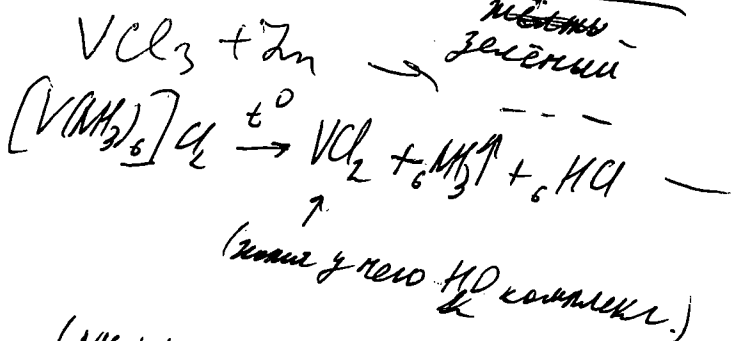 VCl₃ + Zn → зелёный
[V(NH₃)₆]Cl₂ t° → VCl₂ + ₆NH₃↑ + ₆HCl —
↑
у чего H₂O комплекс.)